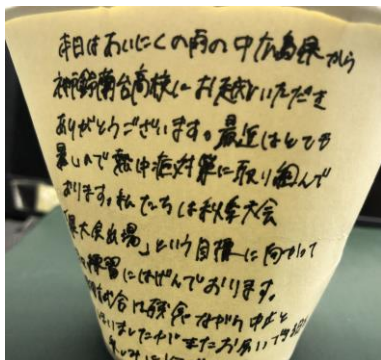 本日はあいにくの雨の中広島県から
神戸鈴蘭台高校にお越しいただき
ありがとうございます。最近はとても
暑いので熱中症対策に取り組んで
おります。私たちは秋季大会
「県大会出場」という目標に向かって
練習にはげんでおります。
試合は残念ながら中止と
りましたがまたお会いできる